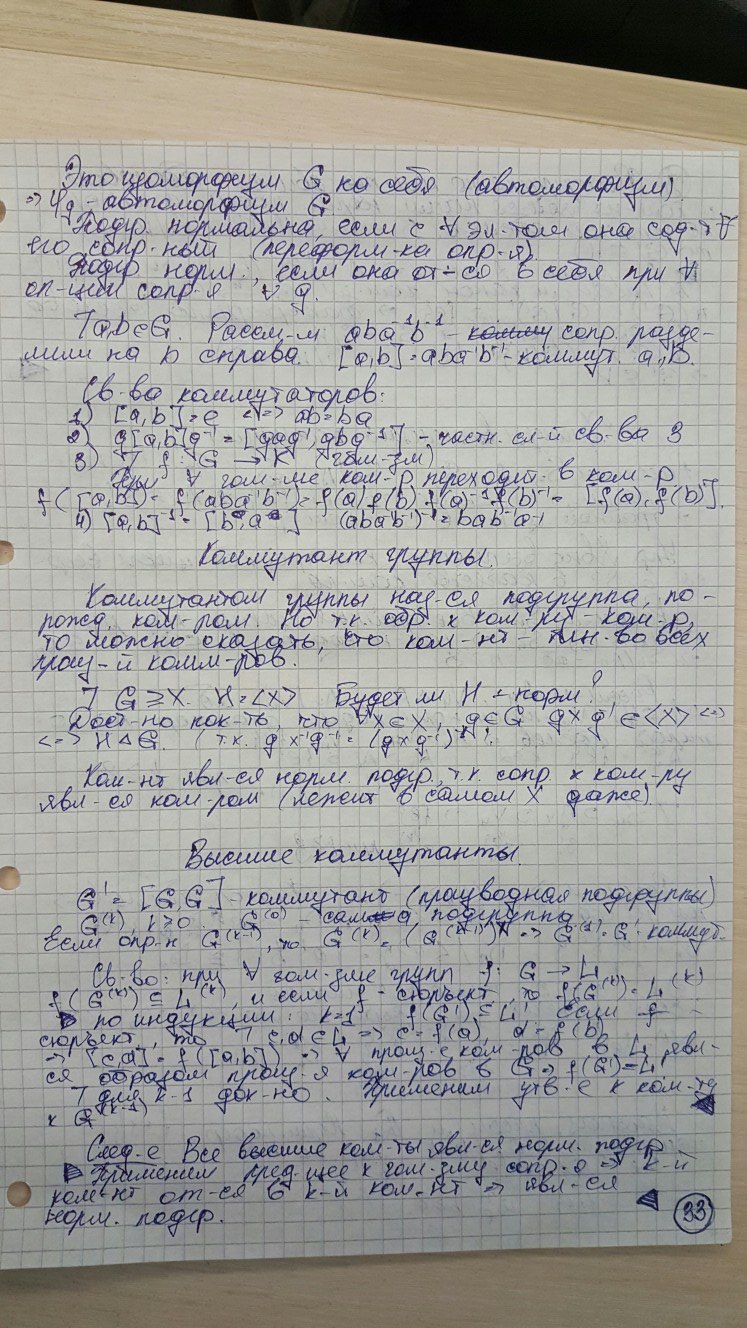 Это изоморфизм G на себя (автоморфизм)
=> φg - автоморфизм G
Подгр нормальна, если с ∀ эл-том она сод-т ∀
его сопр-ный (переформ-ка опр-я)
Подгр норм., если она от-ся в себя при ∀
оп-ции сопр-я ∀ g.
] a,b∈G. Рассм-м aba⁻¹b⁻¹ - сопр. разде-
лили на b справа. [a,b]=aba⁻¹b⁻¹ - коммут. a,b.
Св-ва коммутаторов:
1) [a,b]=e <=> ab=ba
2) g[a,b]g⁻¹ = [gag⁻¹, gbg⁻¹] - частн. сл-й св-ва 3
3) ] f: G → K (гом-зм)
При ∀ гом-ме ком-р переходит в ком-р
f([a,b])= f(aba⁻¹b⁻¹)=f(a)f(b)f(a)⁻¹f(b)⁻¹= [f(a), f(b)].
4) [a,b]⁻¹ = [b a] (aba⁻¹b⁻¹)⁻¹=bab⁻¹a⁻¹
Коммутант группы.
Коммутантом группы наз-ся подгруппа, по-
рожд. ком-ром. Но т.к. обр. к ком-ру - ком-р,
то можно сказать, что ком-нт - мн-во всех
произ-й комм-ров.
] G ⩾ X. H=<X> Будет ли H - норм?
Дост-но пок-ть, что ∀x∈X, g∈G gxg⁻¹∈<X> <=>
<=> H⊲G. (т.к. gx⁻¹g⁻¹= (gxg⁻¹)⁻¹).
Ком-нт явл-ся норм. подгр., т.к. сопр. к ком-ру
явл-ся ком-ром (лежит в самом X даже)
Высшие коммутанты.
G' = [G,G] - коммутант (производная подгруппы)
G⁽ᵏ⁾, k>0 G⁽⁰⁾ - сама подгруппа
Если опр-н G⁽ᵏ⁻¹⁾, то G⁽ᵏ⁾ = (G⁽ᵏ⁻¹⁾)' => G⁽¹⁾=G' коммут.
Св-во: при ∀ гом-зме групп f: G → L
f(G⁽ᵏ⁾) ⊆ L⁽ᵏ⁾, и если f - сюръект, то f(G⁽ᵏ⁾)= L⁽ᵏ⁾
▶ по индукции: k=1 f(G') ⊆ L' Если f -
сюръект, то ] c,d∈L => c=f(a), d=f(b)
=> [c,d] = f([a,b]) => ∀ произ-е ком-ров в L явл-
ся образом произ-я ком-ров в G => f(G')=L'
] для k-1 док-но. Применим утв-е к ком-ту
к G⁽ᵏ⁻¹⁾ ◀
След-е Все высшие ком-ты явл-ся норм. подгр.
▶ Применим пред-щее к гом-зму сопр-я => k-й
ком-нт от-ся в k-й ком-нт => явл-ся
норм. подгр. ◀
33